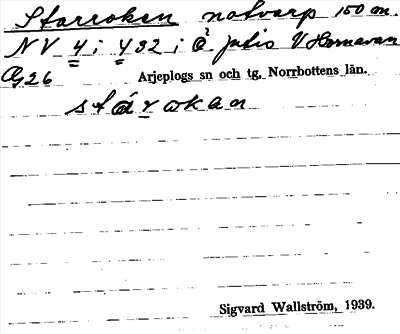 Starroken notvarp 150 m.
NV 4 i 432 i Ö. jutis V Hornavan
Arjeplogs sn och tg, Norrbottens län.
stárokan
Sigvard Wallström, 1939.